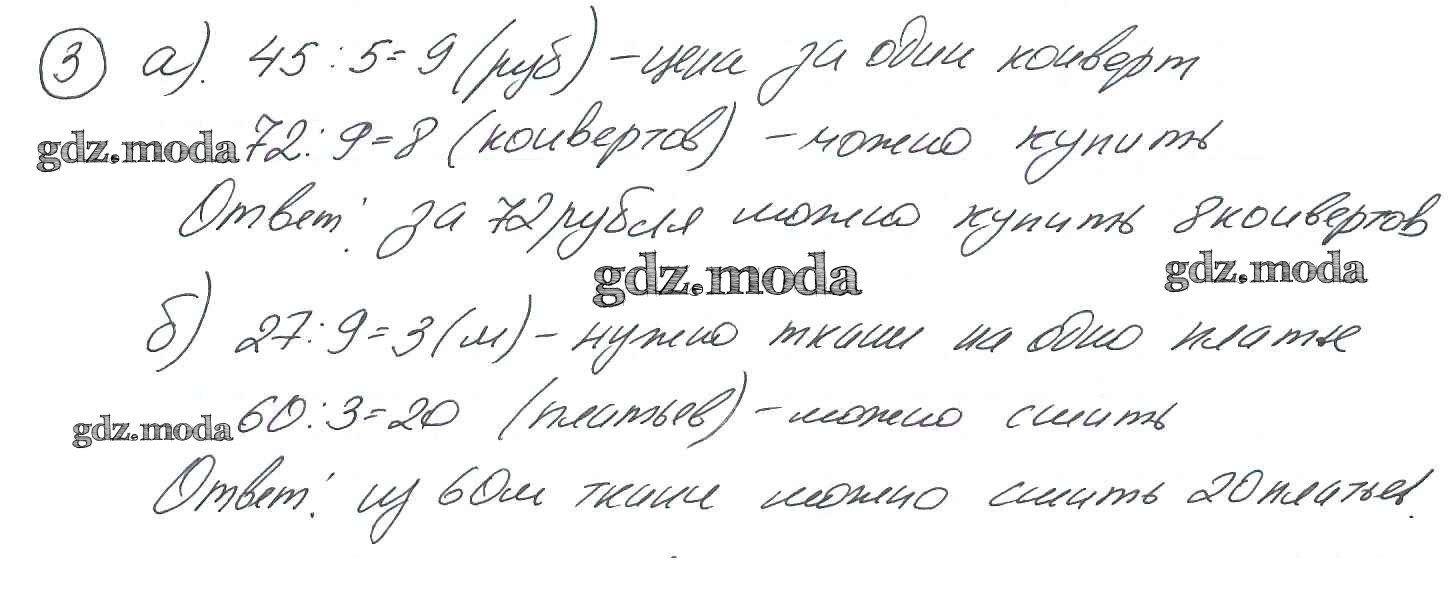 3 а). 45 : 5 = 9 (руб) – цена за один конверт
gdz.moda 72 : 9 = 8 (конвертов) – можно купить
Ответ: за 72 рубля можно купить 8 конвертов
gdz.moda gdz.moda
б) 27 : 9 = 3 (м) – нужно ткани на одно платье
gdz.moda 60 : 3 = 20 (платьев) – можно сшить
Ответ: из 60 м ткани можно сшить 20 платьев.